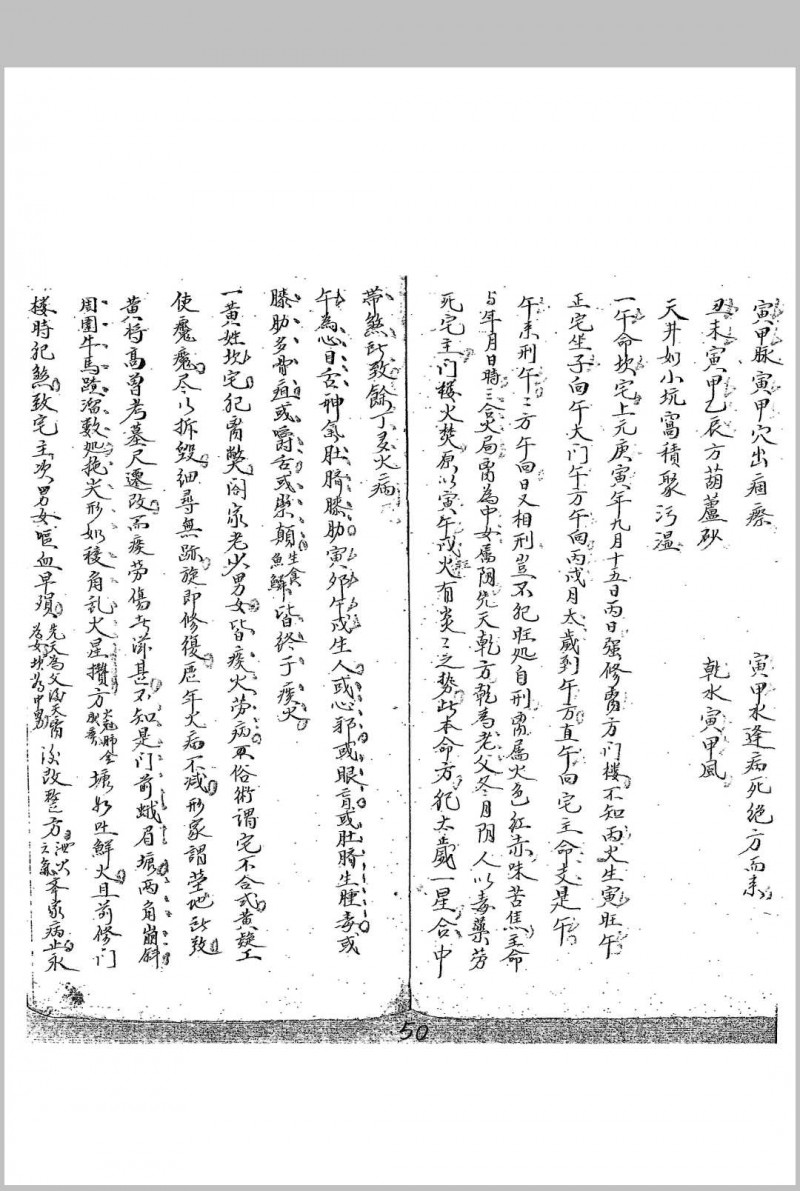 寅甲脉寅甲穴出痼瘵　寅甲水逢病死絕方而来
丑未寅甲乙辰方葫蘆砂　乾水寅甲風
天井如小坑窩積聚污湿
一午命坎宅上元庚寅年九月十五日丙日强修离方门樓不知丙火生寅旺午
正宅坐子向午大门午方午向丙戌月太歲到午方直午向宅主命支是午
午来刑午二方午向日又相刑豈不犯旺处自刑离屬火色紅赤味苦焦主命
与年月日時三合火局离為中女属阴先天乾方乾为老父冬月阴人以毒藥劳
死宅主门樓火焚原以寅午戌火有炎々之勢此本命方犯太歲一星合中
带煞所致餘丁多火病
午為心目舌神氣肚臍膝肋寅卯午戌生人或心邪或眼盲或肚臍生腫毒或
膝肋多骨疽或嚼舌或祟顛生食魚鱗皆終于痰火
一黄姓坎宅犯离獎閤家老少男女皆痰火劳病 俗術謂宅不合式黄旋工
使魔魔尽以拆毀细尋無跡旋即修復歷年火病不減形家謂塋地所致
黄将高曾考墓尺遷改而痰劳傷者滞甚不知是门前蛾眉塘两角崩斜
周圍牛馬踏溜数処拖尖形如稜角乱火星攢方 塘如吐鮮火且前修门
樓時犯煞致宅主次男女嘔血早殞先天為父後天离為女坎為中男 後改 方泄火之氣 家病止永
50